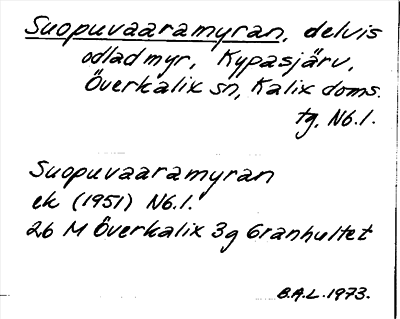 Suopuvaaramyran, delvis
odlad myr, Kypasjärv,
Överkalix sn, Kalix doms.
tg, Nb.l.
Suopuvaaramyran
ek (1951) Nb.l.
26 M Överkalix 3g Granhultet
B.A.L. 1973.